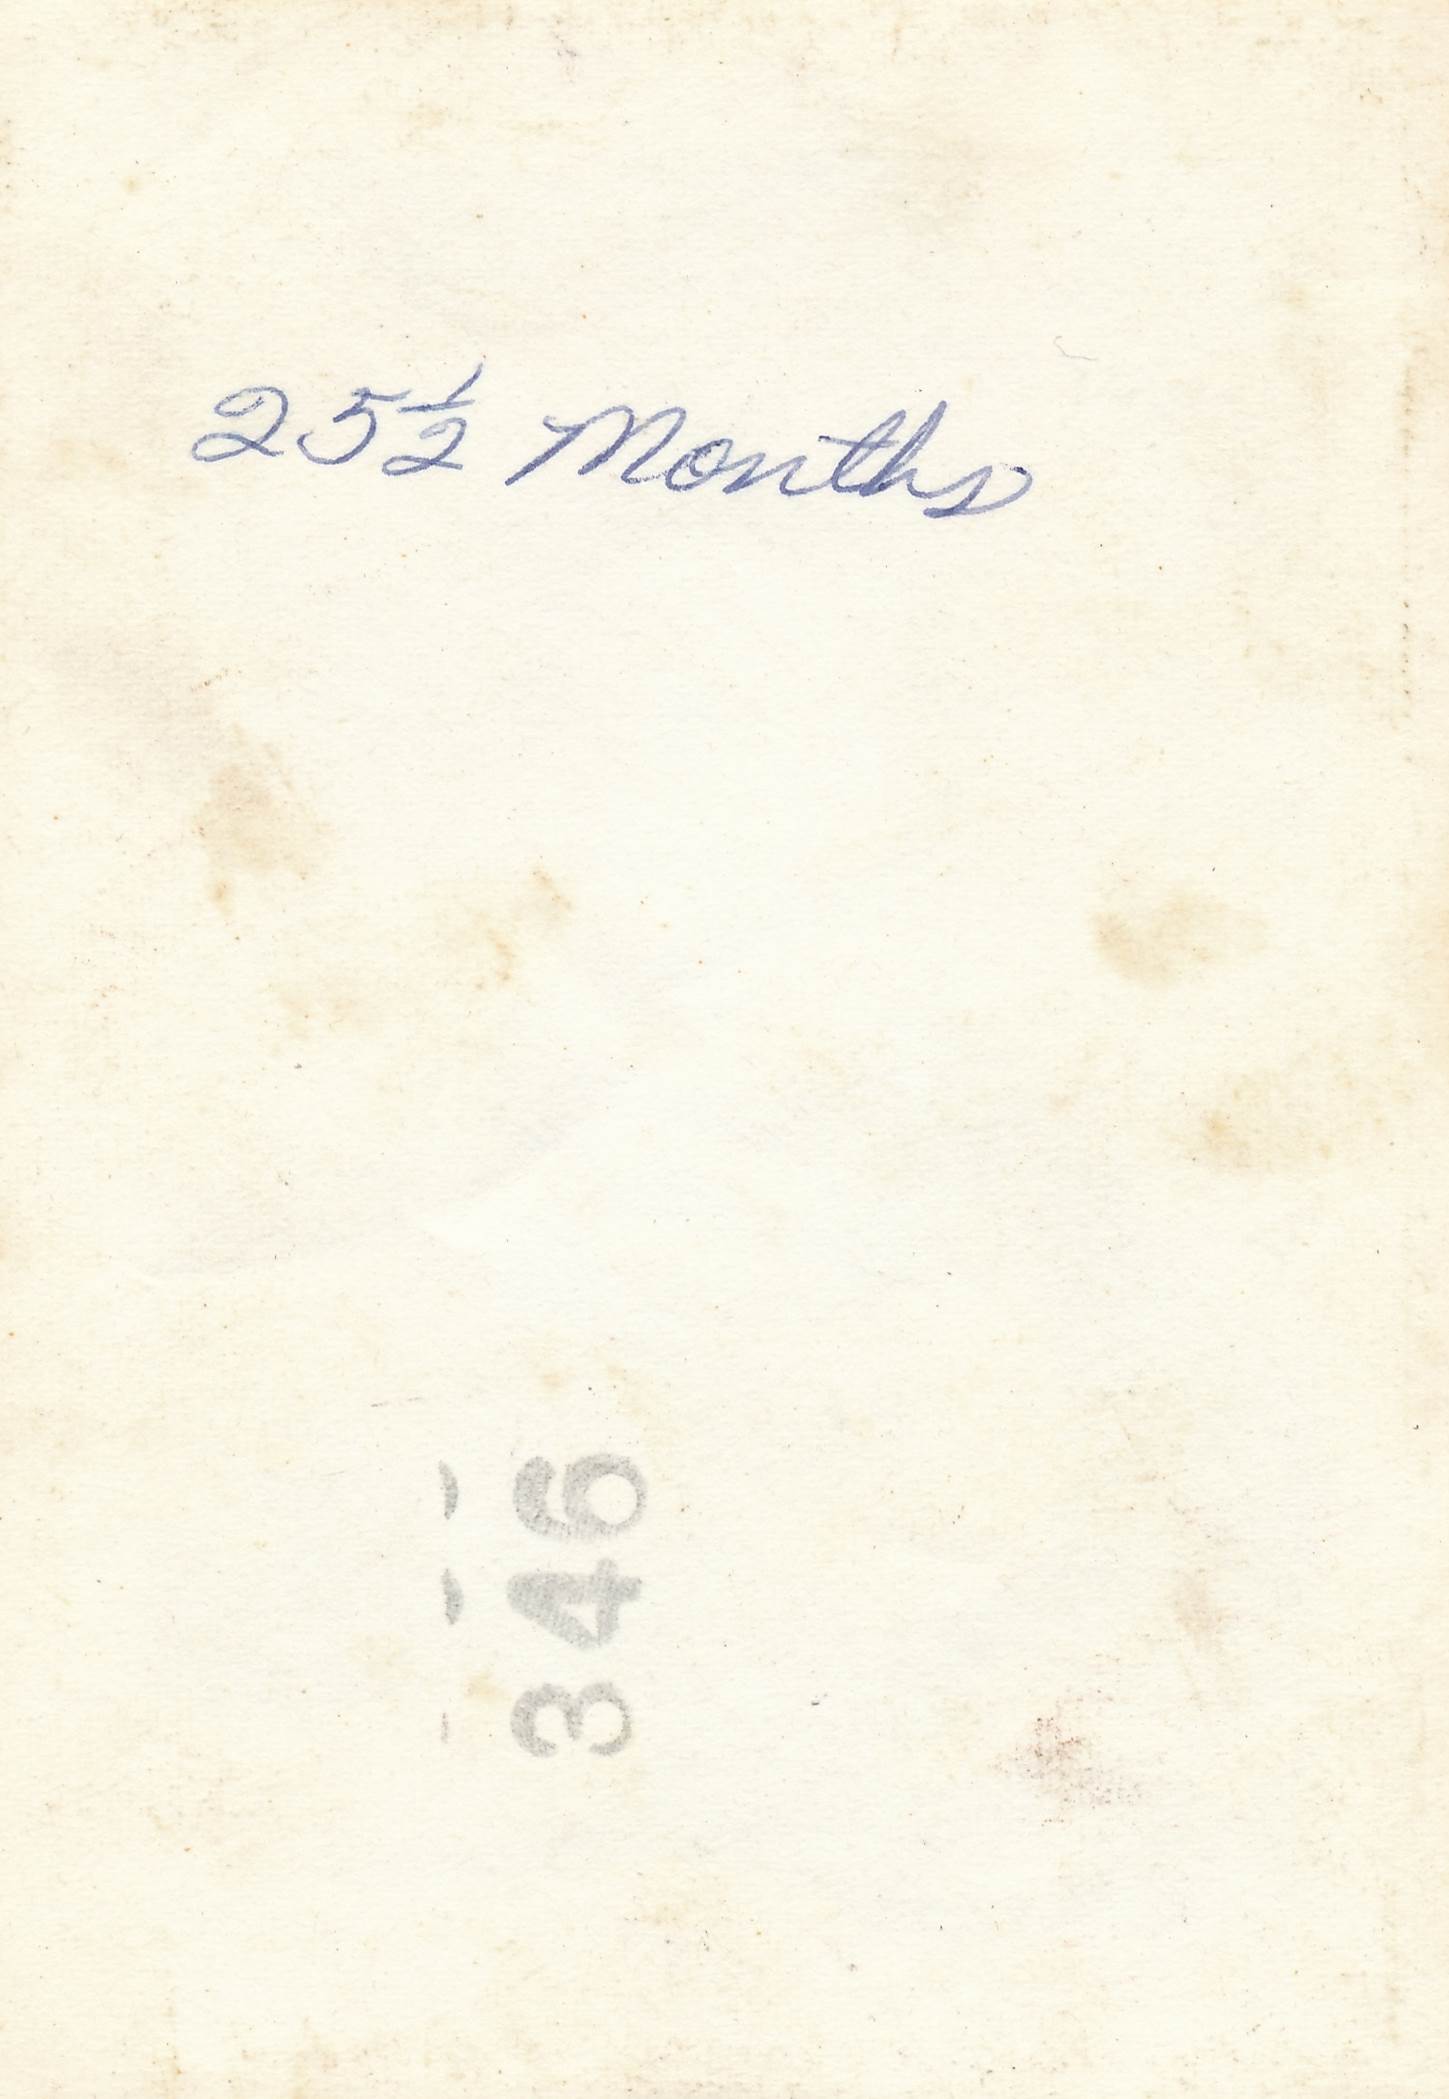 25½ Months
346